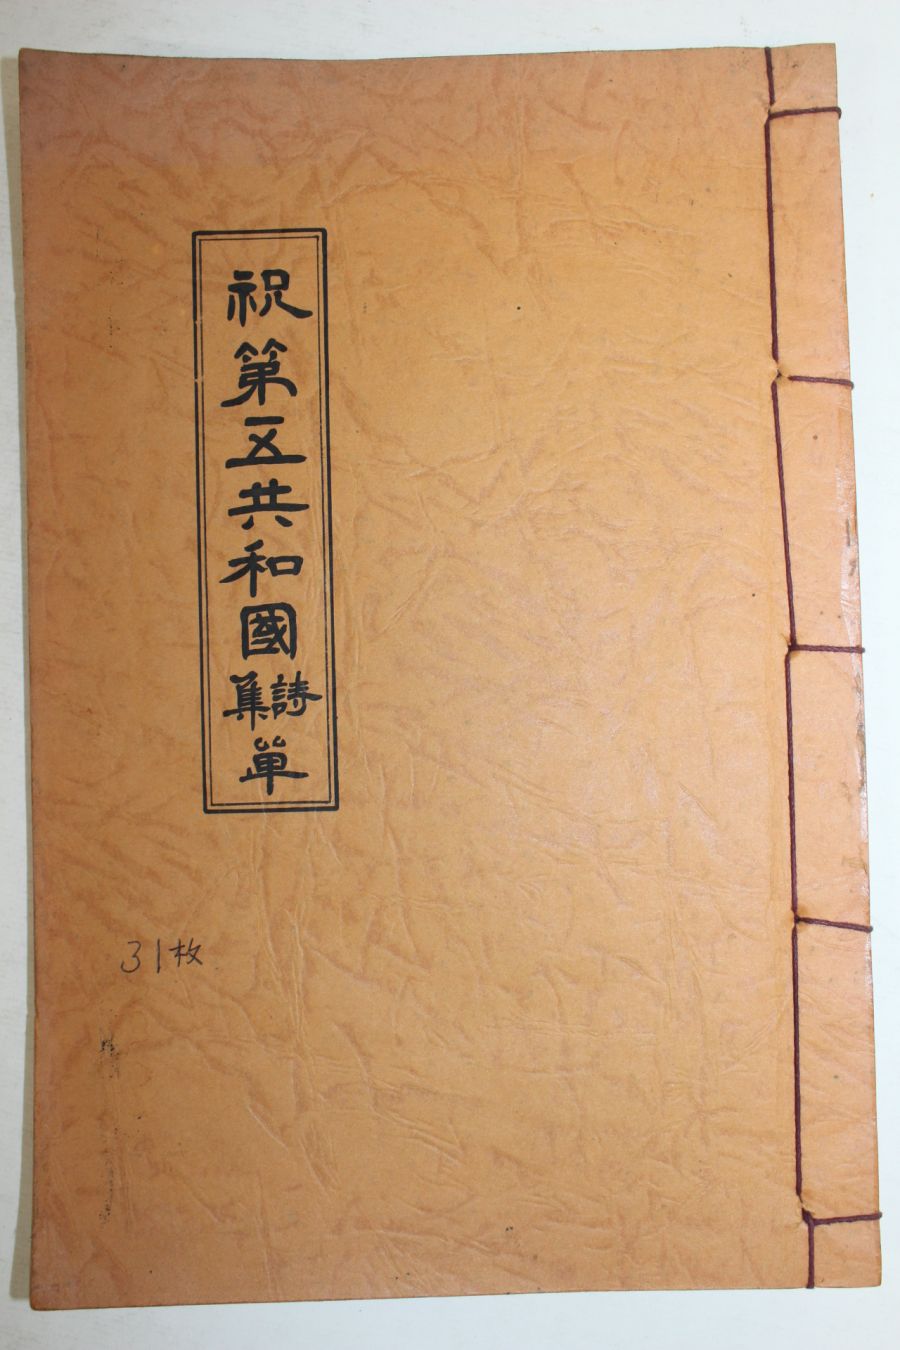 祝第五共和國詩集單
31枚